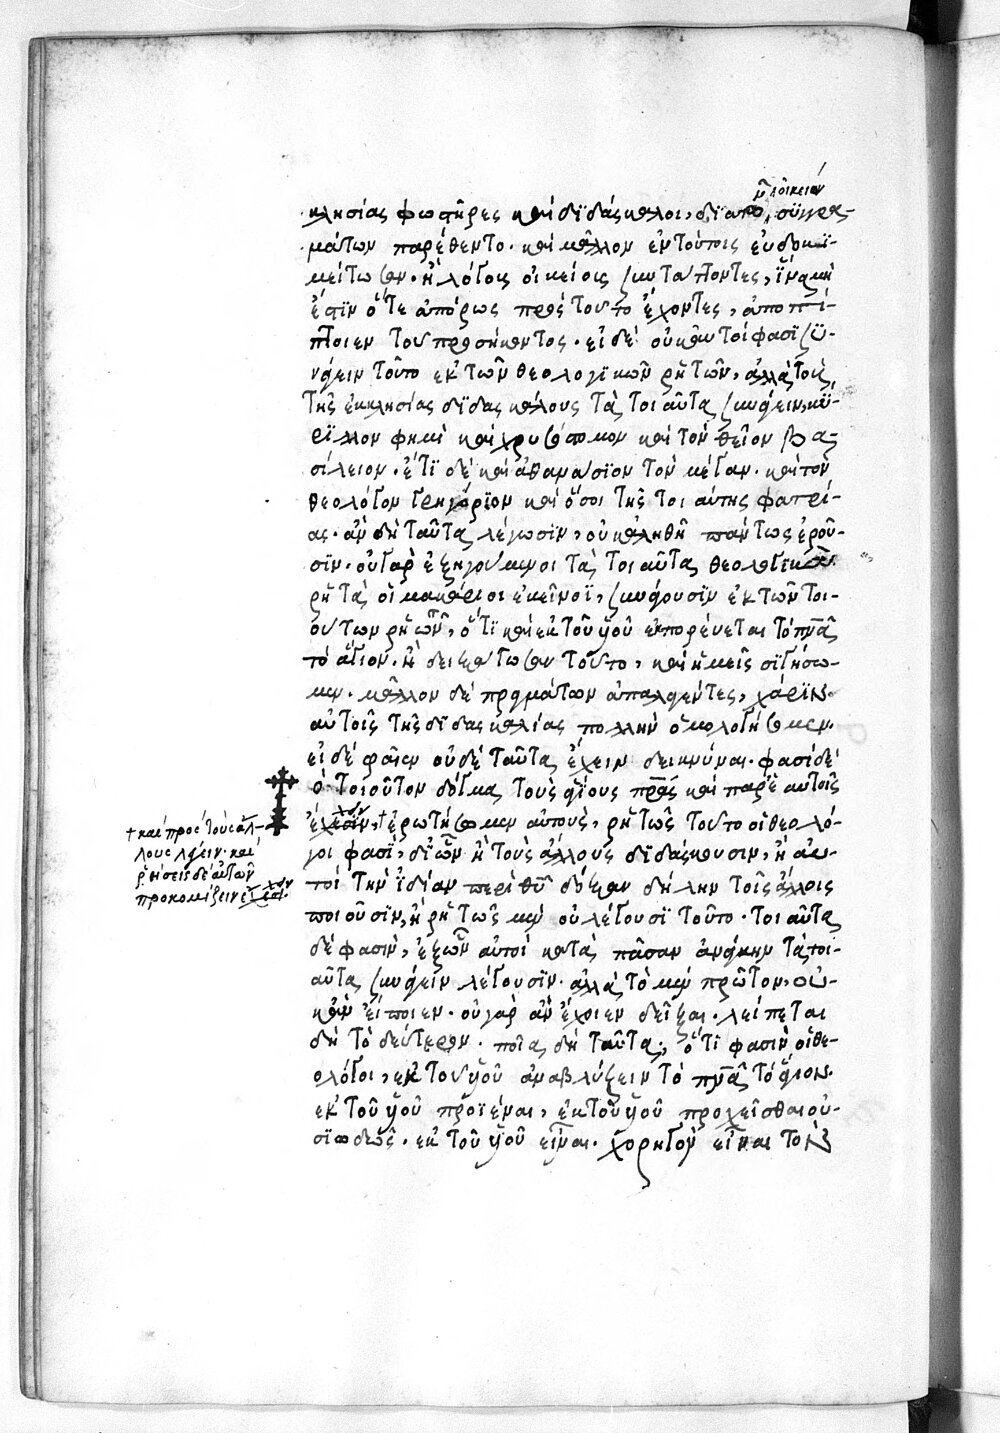 τῶν οἰκείων
κλησίας φωστῆρες καὶ διδάσκαλοι, διὰ συγγραμ-
μάτων παρέθεντο. καὶ μᾶλλον ἐν τούτοις εὐδοκι-
μείτωσαν. ἢ λόγοις οἰκείοις συνάπτοντες, ἵνα μὴ
ἔστιν ὅτε ἀπόρως πρὸς τοῦτο ἔχοντες, ἀποπί-
πτοιεν τοῦ προσήκοντος. εἰ δὲ οὐκ αὐτοί φασι συ-
νάγειν τοῦτο ἐκ τῶν θεολογικῶν ῥητῶν, ἀλλὰ τοὺς
τῆς ἐκκλησίας διδασκάλους τὰ τοιαῦτα συνάγειν, κύ-
ριλλον φημὶ καὶ χρυσόστομον καὶ τὸν θεῖον βα-
σίλειον. ἔτι δὲ καὶ ἀθανάσιον τὸν μέγαν. καὶ τὸν
θεολόγον γρηγόριον καὶ ὅσοι τῆς τοιαύτης φατρί-
ας. ἂν δὴ ταῦτα λέγωσιν, οὐκ ἀληθῆ πάντως ἐροῦ-
σιν. οὐ γὰρ ἐξηγούμενοι τὰ τοιαῦτα θεολογικὰ
ῥητὰ οἱ μακάριοι ἐκεῖνοι, συνάγουσιν ἐκ τῶν τοι-
ούτων ῥητῶν, ὅτι καὶ ἐκ τοῦ υἱοῦ ἐκπορεύεται τὸ πνᾶ
τὸ ἅγιον. ἢ δειξάτωσαν τοῦτο, καὶ ἡμεῖς σιγήσω-
μεν. μᾶλλον δὲ πραγμάτων ἀπαλαγέντες, χάριν
αὐτοῖς τῆς διδασκαλίας πολλὴν ὁμολογήσομεν.
εἰ δὲ φαῖεν οὐδὲ ταῦτα ἔχειν δεικνύναι. φασὶ δὲ
τοιοῦτον δόγμα τοὺς ἁγίους πρᾶς καὶ παρ' αὐτοῖς
ἐρωτήσομεν αὐτοὺς, ῥητῶς τοῦτο οἱ θεολό-
γοι φασὶ, δι' ὧν ἢ τοὺς ἄλλους διδάσκουσιν, ἢ αὐ-
τοὶ τὴν ἰδίαν περὶ θῦ δόξαν δήλην τοῖς ἄλλοις
ποιοῦσιν, ἢ ῥητῶς μὲν οὐ λέγουσι τοῦτο. τοιαῦτα
δέ φασιν, ἐξ ὧν αὐτοὶ κατὰ πᾶσαν ἀνάγκην τὰ τοι-
αῦτα συνάγειν λέγουσιν. ἀλλὰ τὸ μὲν πρῶτον, οὐ-
κ ἂν εἴποιεν. οὐ γὰρ ἂν ἔχοιεν δεῖξαι. λείπεται
δὴ τὸ δεύτερον. ποῖα δὴ ταῦτα; ὅτι φασὶν οἱ θε-
ολόγοι, ἐκ τοῦ υἱοῦ ἀναβλύζειν τὸ πνᾶ τὸ ἅγιον.
ἐκ τοῦ υἱοῦ προϊέναι, ἐκ τοῦ υἱοῦ προχεῖσθαι οὐ-
σιωδῶς. ἐκ τοῦ υἱοῦ εἶναι. χορηγὸν εἶναι τὸν
+ καὶ πρὸς τοὺς ἄλ-
λους λέγειν. καὶ
ῥήσεις δὲ αὐτῶν
προκομίζειν